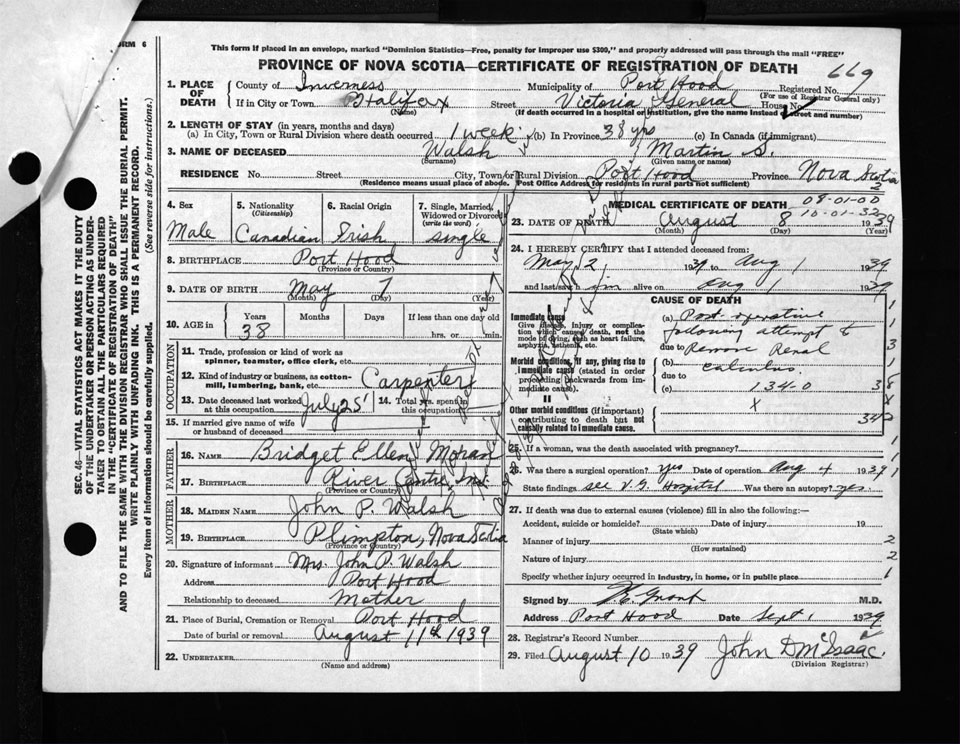 FORM 6
This form if placed in an envelope, marked "Dominion Statistics—Free, penalty for improper use $300," and properly addressed will pass through the mail "FREE"
PROVINCE OF NOVA SCOTIA—CERTIFICATE OF REGISTRATION OF DEATH
669
1. PLACE OF DEATH
County of Inverness
Municipality of Port Hood
Registered No.
(For use of Registrar General only)
If in City or Town Halifax
(Name)
Street Victoria General House No.
(If death occurred in a hospital or institution, give the name instead of street and number)
2. LENGTH OF STAY (in years, months and days)
(a) In City, Town or Rural Division where death occurred 1 week (b) In Province 38 yrs (c) In Canada (if immigrant)
3. NAME OF DECEASED Walsh Martin S.
(Surname) (Given name or names)
RESIDENCE No. Street City, Town or Rural Division Port Hood Province Nova Scotia
(Residence means usual place of abode. Post Office Address for residents in rural parts not sufficient)
2
4. Sex
Male
5. Nationality
(Citizenship)
Canadian
6. Racial Origin
Irish
7. Single, Married, Widowed or Divorced
(write the word)
single
8. BIRTHPLACE Port Hood
(Province or Country)
9. DATE OF BIRTH May 7
(Month) (Day) (Year)
10. AGE in
Years Months Days If less than one day old
38
hrs. or min.
OCCUPATION
11. Trade, profession or kind of work as spinner, teamster, office clerk, etc.
12. Kind of industry or business, as cotton-mill, lumbering, bank, etc. Carpenter
13. Date deceased last worked at this occupation July 25
14. Total yrs. spent in this occupation
15. If married give name of wife or husband of deceased
FATHER
16. NAME Bridget Ellen Moran
17. BIRTHPLACE River Centre, Ins.
(Province or Country)
MOTHER
18. MAIDEN NAME John P. Walsh
19. BIRTHPLACE Plimpton, Nova Scotia
(Province or Country)
20. Signature of informant Mrs. John P. Walsh
Address Port Hood
Relationship to deceased Mother
21. Place of Burial, Cremation or Removal Port Hood
Date of burial or removal August 11th 1939
22. UNDERTAKER
(Name and address)
MEDICAL CERTIFICATE OF DEATH
08-01-00
10-01-32
23. DATE OF DEATH August 8 1939
(Month) (Day) (Year)
24. I HEREBY CERTIFY that I attended deceased from:
May 2 1939 to Aug 1 1939
and last saw him alive on Aug 1 1939
CAUSE OF DEATH
I
Immediate cause
Give disease, injury or complication which caused death, not the mode of dying, such as heart failure, asphyxia, asthenia, etc.
(a) Post operative
following attempt to
due to Remove Renal
Morbid conditions, if any, giving rise to immediate cause (stated in order proceeding backwards from immediate cause).
(b) calculus.
due to
(c) 134-0
X
II
Other morbid conditions (if important) contributing to death but not causally related to immediate cause.
25. If a woman, was the death associated with pregnancy?
26. Was there a surgical operation? yes Date of operation Aug 4 1939
State findings see V.G. Hospital Was there an autopsy? yes.
27. If death was due to external causes (violence) fill in also the following:—
Accident, suicide or homicide? Date of injury 19
(State which)
Manner of injury 2
(How sustained)
Nature of injury 2
Specify whether injury occurred in industry, in home, or in public place 1
Signed by Grant M.D.
Address Port Hood Date Sept 1 1939
28. Registrar's Record Number
29. Filed August 10 1939 John D McIsaac.
(Division Registrar)
SEC. 46—VITAL STATISTICS ACT MAKES IT THE DUTY
OF THE UNDERTAKER OR PERSON ACTING AS UNDER-
TAKER TO OBTAIN ALL THE PARTICULARS REQUIRED
IN THE "CERTIFICATE OF REGISTRATION OF DEATH"
AND TO FILE THE SAME WITH THE DIVISION REGISTRAR WHO SHALL ISSUE THE BURIAL PERMIT.
WRITE PLAINLY WITH UNFADING INK. THIS IS A PERMANENT RECORD.
Every item of information should be carefully supplied. (See reverse side for instructions.)